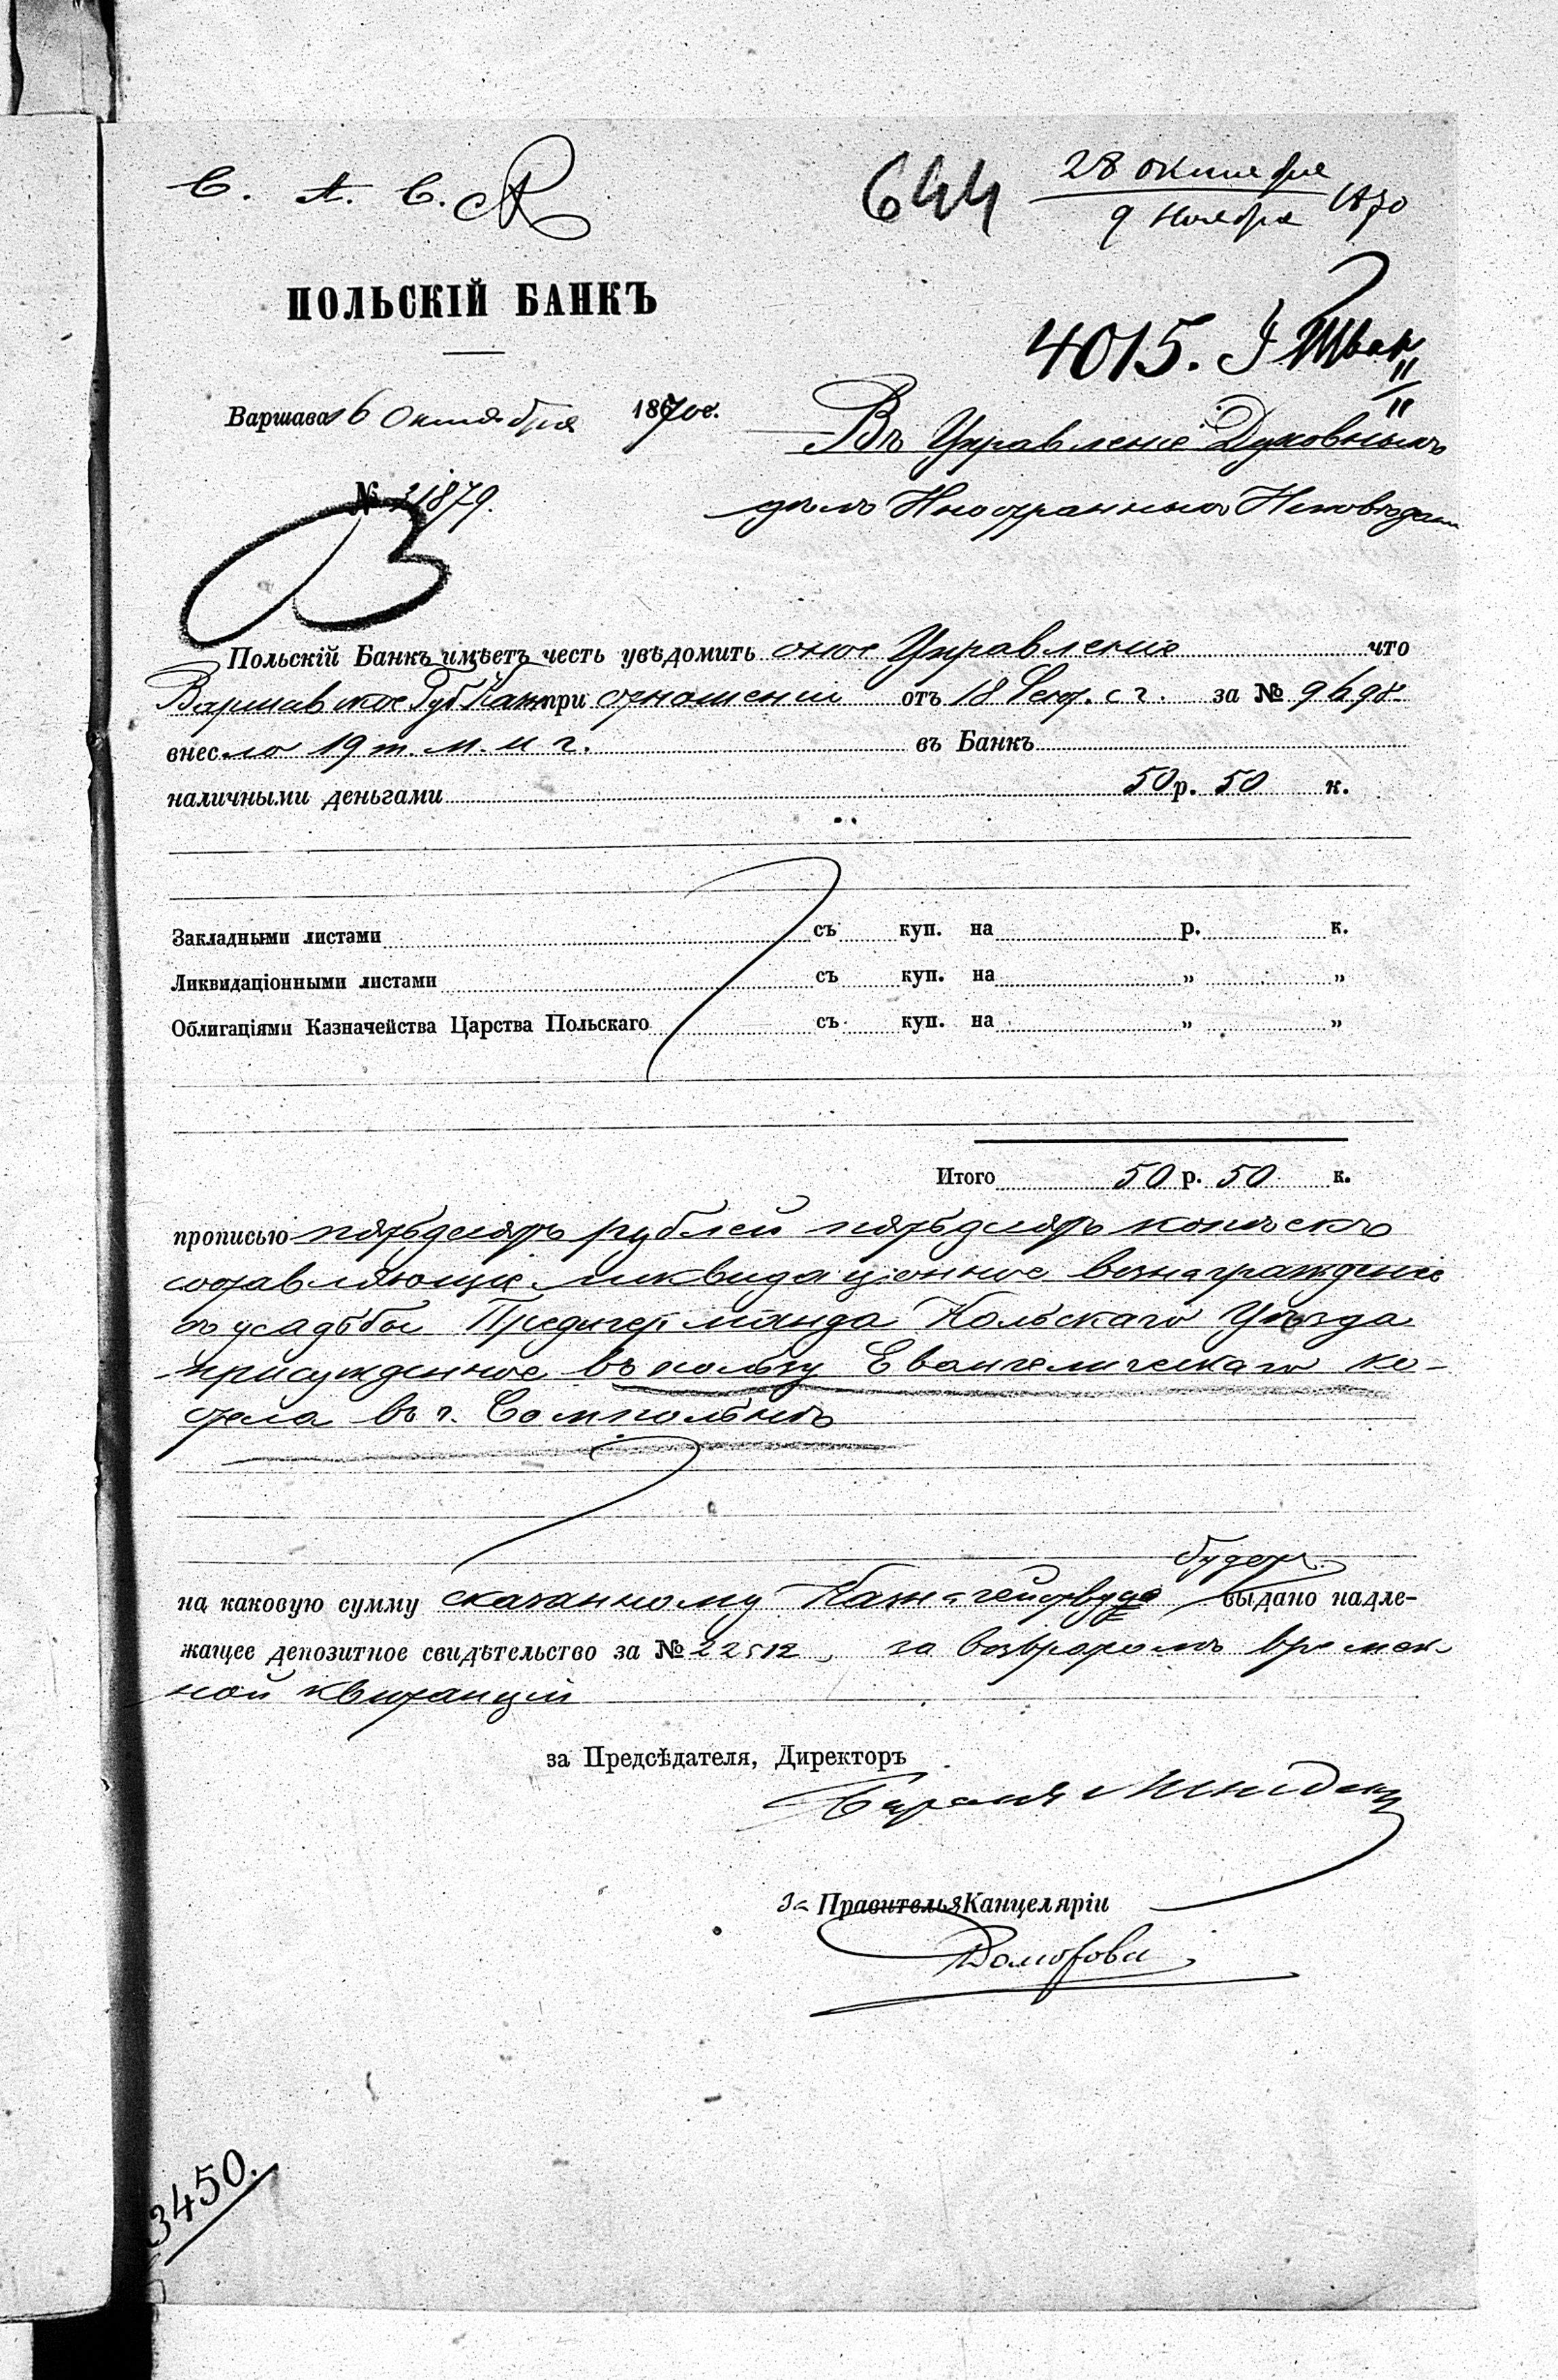 С. А. С.
644 28 октября
9 ноября 1870
ПОЛЬСКІЙ БАНКЪ
4015. I
Варшава 16 Октября 1870 г.
Въ Управленіе Духовныхъ
№ 31879.
дѣлъ Иностранныхъ Исповѣданій
Польскій Банкъ имѣетъ честь увѣдомить оное Управленіе что
Варшавское Губ Казн при отношеніи отъ 18 Сент. с г. за № 9698
внесло 19 т. м. и г. въ Банкъ
наличными деньгами 50 р. 50 к.
Закладными листами съ куп. на р. к.
Ликвидаціонными листами съ куп. на „ „
Облигаціями Казначейства Царства Польскаго съ куп. на „ „
Итого 50 р. 50 к.
прописью пятьдесятъ рублей пятьдесятъ копѣекъ
составляющіе ликвидаціонное вознагражденіе
усадьбы Кольскаго Уѣзда
присужденное въ пользу Евангелическаго ко-
стела въ г. Сомпольнѣ
будетъ
на каковую сумму сказанному Казначейству выдано надле-
жащее депозитное свидѣтельство за № 22512 за возвратомъ времен-
ной квитанціи
за Предсѣдателя, Директоръ
За Правителя Канцеляріи
3450.